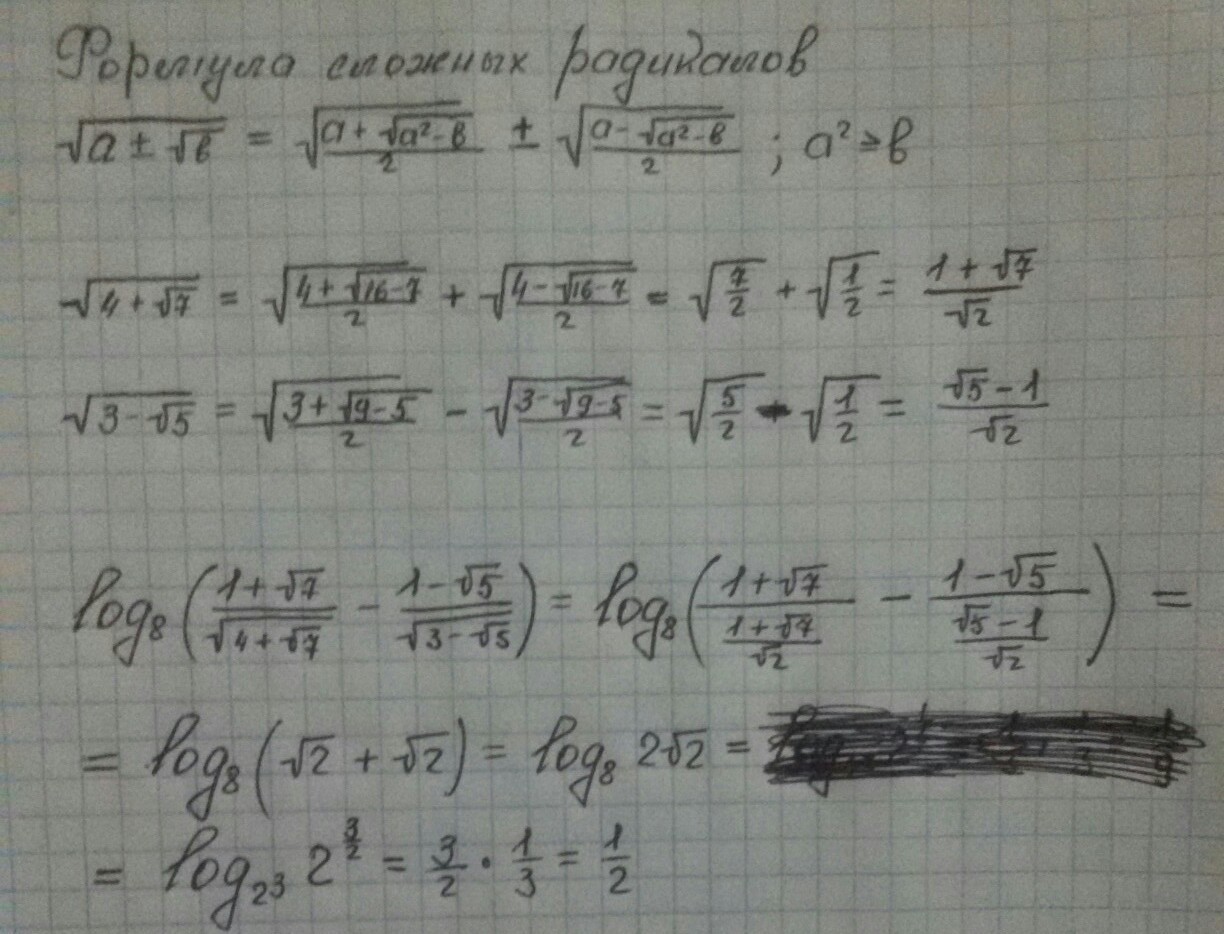 Формула сложных радикалов
√(a ± √b) = √((a + √(a² - b))/2) ± √((a - √(a² - b))/2) ; a² ≥ b
√(4 + √7) = √((4 + √(16 - 7))/2) + √((4 - √(16 - 7))/2) = √(7/2) + √(1/2) = (1 + √7)/√2
√(3 - √5) = √((3 + √(9 - 5))/2) - √((3 - √(9 - 5))/2) = √(5/2) - √(1/2) = (√5 - 1)/√2
log₈((1 + √7)/√(4 + √7) - (1 - √5)/√(3 - √5)) = log₈((1 + √7)/((1 + √7)/√2) - (1 - √5)/((√5 - 1)/√2)) =
= log₈(√2 + √2) = log₈ 2√2 =
= log_{2³} 2^{3/2} = 3/2 · 1/3 = 1/2